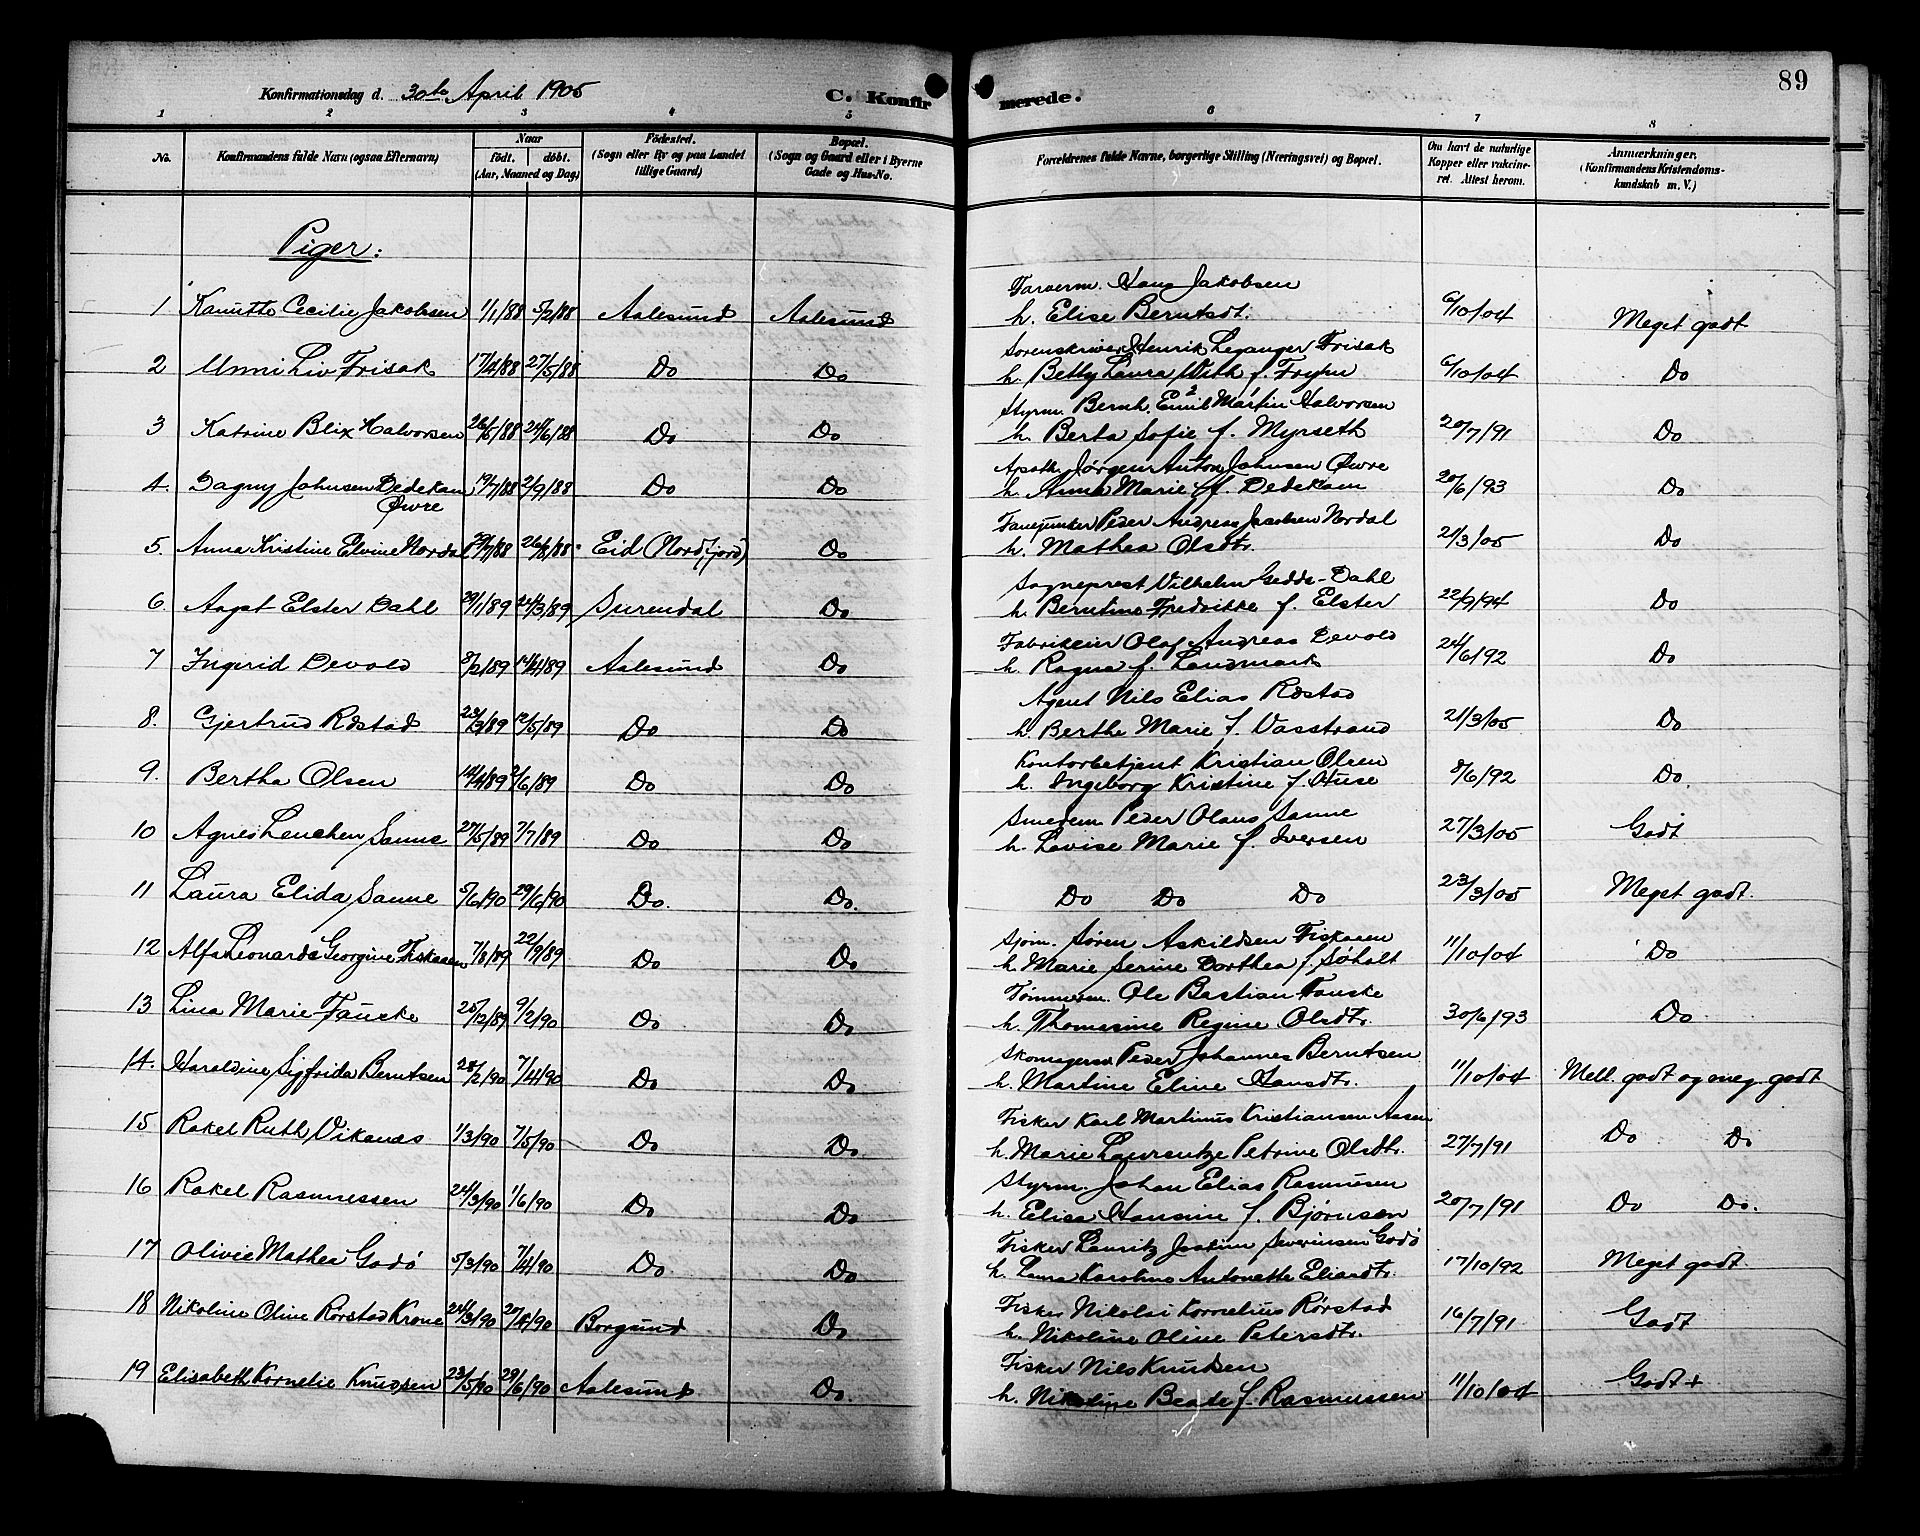 89
Konfirmationsdag d. 30te April 1905 C. Konfirmerede.
1 2 3 4 5 6 7 8
No. Konfirmandens fulde Navn (ogsaa Efternavn) Naar født. døbt. (Aar, Maaned og Dag) Fødested. (Sogn eller By og paa Landet tillige Gaard) Bopæl. (Sogn og Gaard eller i Byerne Gade og Hus-No. Forældrenes fulde Navne, borgerlige Stilling (Næringsvei) og Bopæl. Om havt de naturlige Kopper eller vakcineret. Attest herom. Anmærkninger. (Konfirmandens Kristendomskundskab m. V.)
Piger:
Farverm. Hans Jakobsen
1 Kanutte Cecilie Jakobsen 1/1/88 5/2/88 Aalesund Aalesund h. Elise Berntsdt. 6/10/04 Meget godt
Sorenskriver Henrik Leganger Frisak
2 Unni Liv Frisak 17/4/88 27/5/88 Do Do h. Betty Laura With f. 6/10/04 Do
Styrm. Bernh. Emil Martin Halvorsen
3 Katrine Blix Halvorsen 26/5/88 24/6/88 Do Do h. Berta Sofie f. Myrseth 20/7/91 Do
Apoth. Jørgen Anton Johnsen Øwre
4. Dagny Johnsen Dedekam Øwre 19/7/88 2/9/88 Do Do h. Anna Marie f. Dedekam 20/6/93 Do
Fanejunker Peder Andreas Jacobsen Nordal
5. Anna Kristine Elvine Nordal 29/7/88 26/8/88 Eid (Nordfjord) Do h. Mathea Olsdtr. 21/3/05 Do
Sogneprest Vilhelm Gedde-Dahl
6 Aagot Elster Dahl 29/1/89 24/3/89 Surendal Do h. Berntine Fredrikke f. Elster 22/9/94 Do
Fabrikeier Olaf Andreas Devold
7 Ingerid Devold 8/2/89 14/4/89 Aalesund Do h. Ragna f. Landmark 24/6/92 Do
Agent Nils Elias Røstad
8. Gjertrud Røstad 23/3/89 12/5/89 Do Do h. Berthe Marie f. Vasstrand 21/3/05 Do
Kontorbetjent Kristian Olsen
9. Bertha Olsen 14/4/89 2/6/89 Do Do h. Ingeborg Kristine f. Huse 8/6/92 Do
Smedem. Peder Olaus Sanne
10 Agnes Lenchen Sanne 27/5/89 7/7/89 Do Do h. Lovise Marie f. Iversen 27/3/05 Godt
11 Laura Elida Sanne 5/6/90 29/6/90 Do. Do. Do Do Do 23/3/05 Meget godt.
Sjøm. Søren Askildsen Fiskaaen
12 Alfa Leonarda Georgine Fiskaaen 7/8/89 22/9/89 Do Do h. Marie Serine Dorthea f. Søholt 11/10/04 Do
Tømmerm. Ole Bastian Fauske
13 Lina Marie Fauske 25/12/89 9/2/90 Do Do h. Thomasine Regine Olsdtr. 30/6/93 Do
Skomagerm. Peder Johannes Berntsen
14. Haraldine Sigfrida Berntsen 28/2/90 7/4/90 Do Do h. Martine Eline Hansdtr. 11/10/04 Mell. godt og meg. godt
Fisker Karl Martinus Kristiansen Aasen
15 Rakel Ruth Vikanæs 1/3/90 7/5/90 Do Do. h. Marie Laurentze Petrine Olsdtr. 27/7/91 Do Do
Styrm. Johan Elias Rasmusen
16 Rakel Rasmussen 24/3/90 1/6/90 Do Do h. Elisa Hansine f. Bjørnsen 20/7/91 Do Do.
Fisker Lauritz Jostinus Severinsen Godø
17 Olivie Mathea Godø 5/3/90 7/4/90 Do Do h. Lena Karoline Antonette Eliasdtr. 17/10/92 Meget godt
Fisker Nikolai Kornelius Rørstad
18 Nikoline Oline Rørstad Krone 24/3/90 20/4/90 Borgund Do h. Nikoline Oline Petersdtr. 16/7/91 Godt
Fisker Nils Knudsen
19 Elisabeth Kornelie Knudsen 23/5/90 29/6/90 Aalesund Do h. Nikoline Beate f. Rasmussen 11/10/04 Godt+